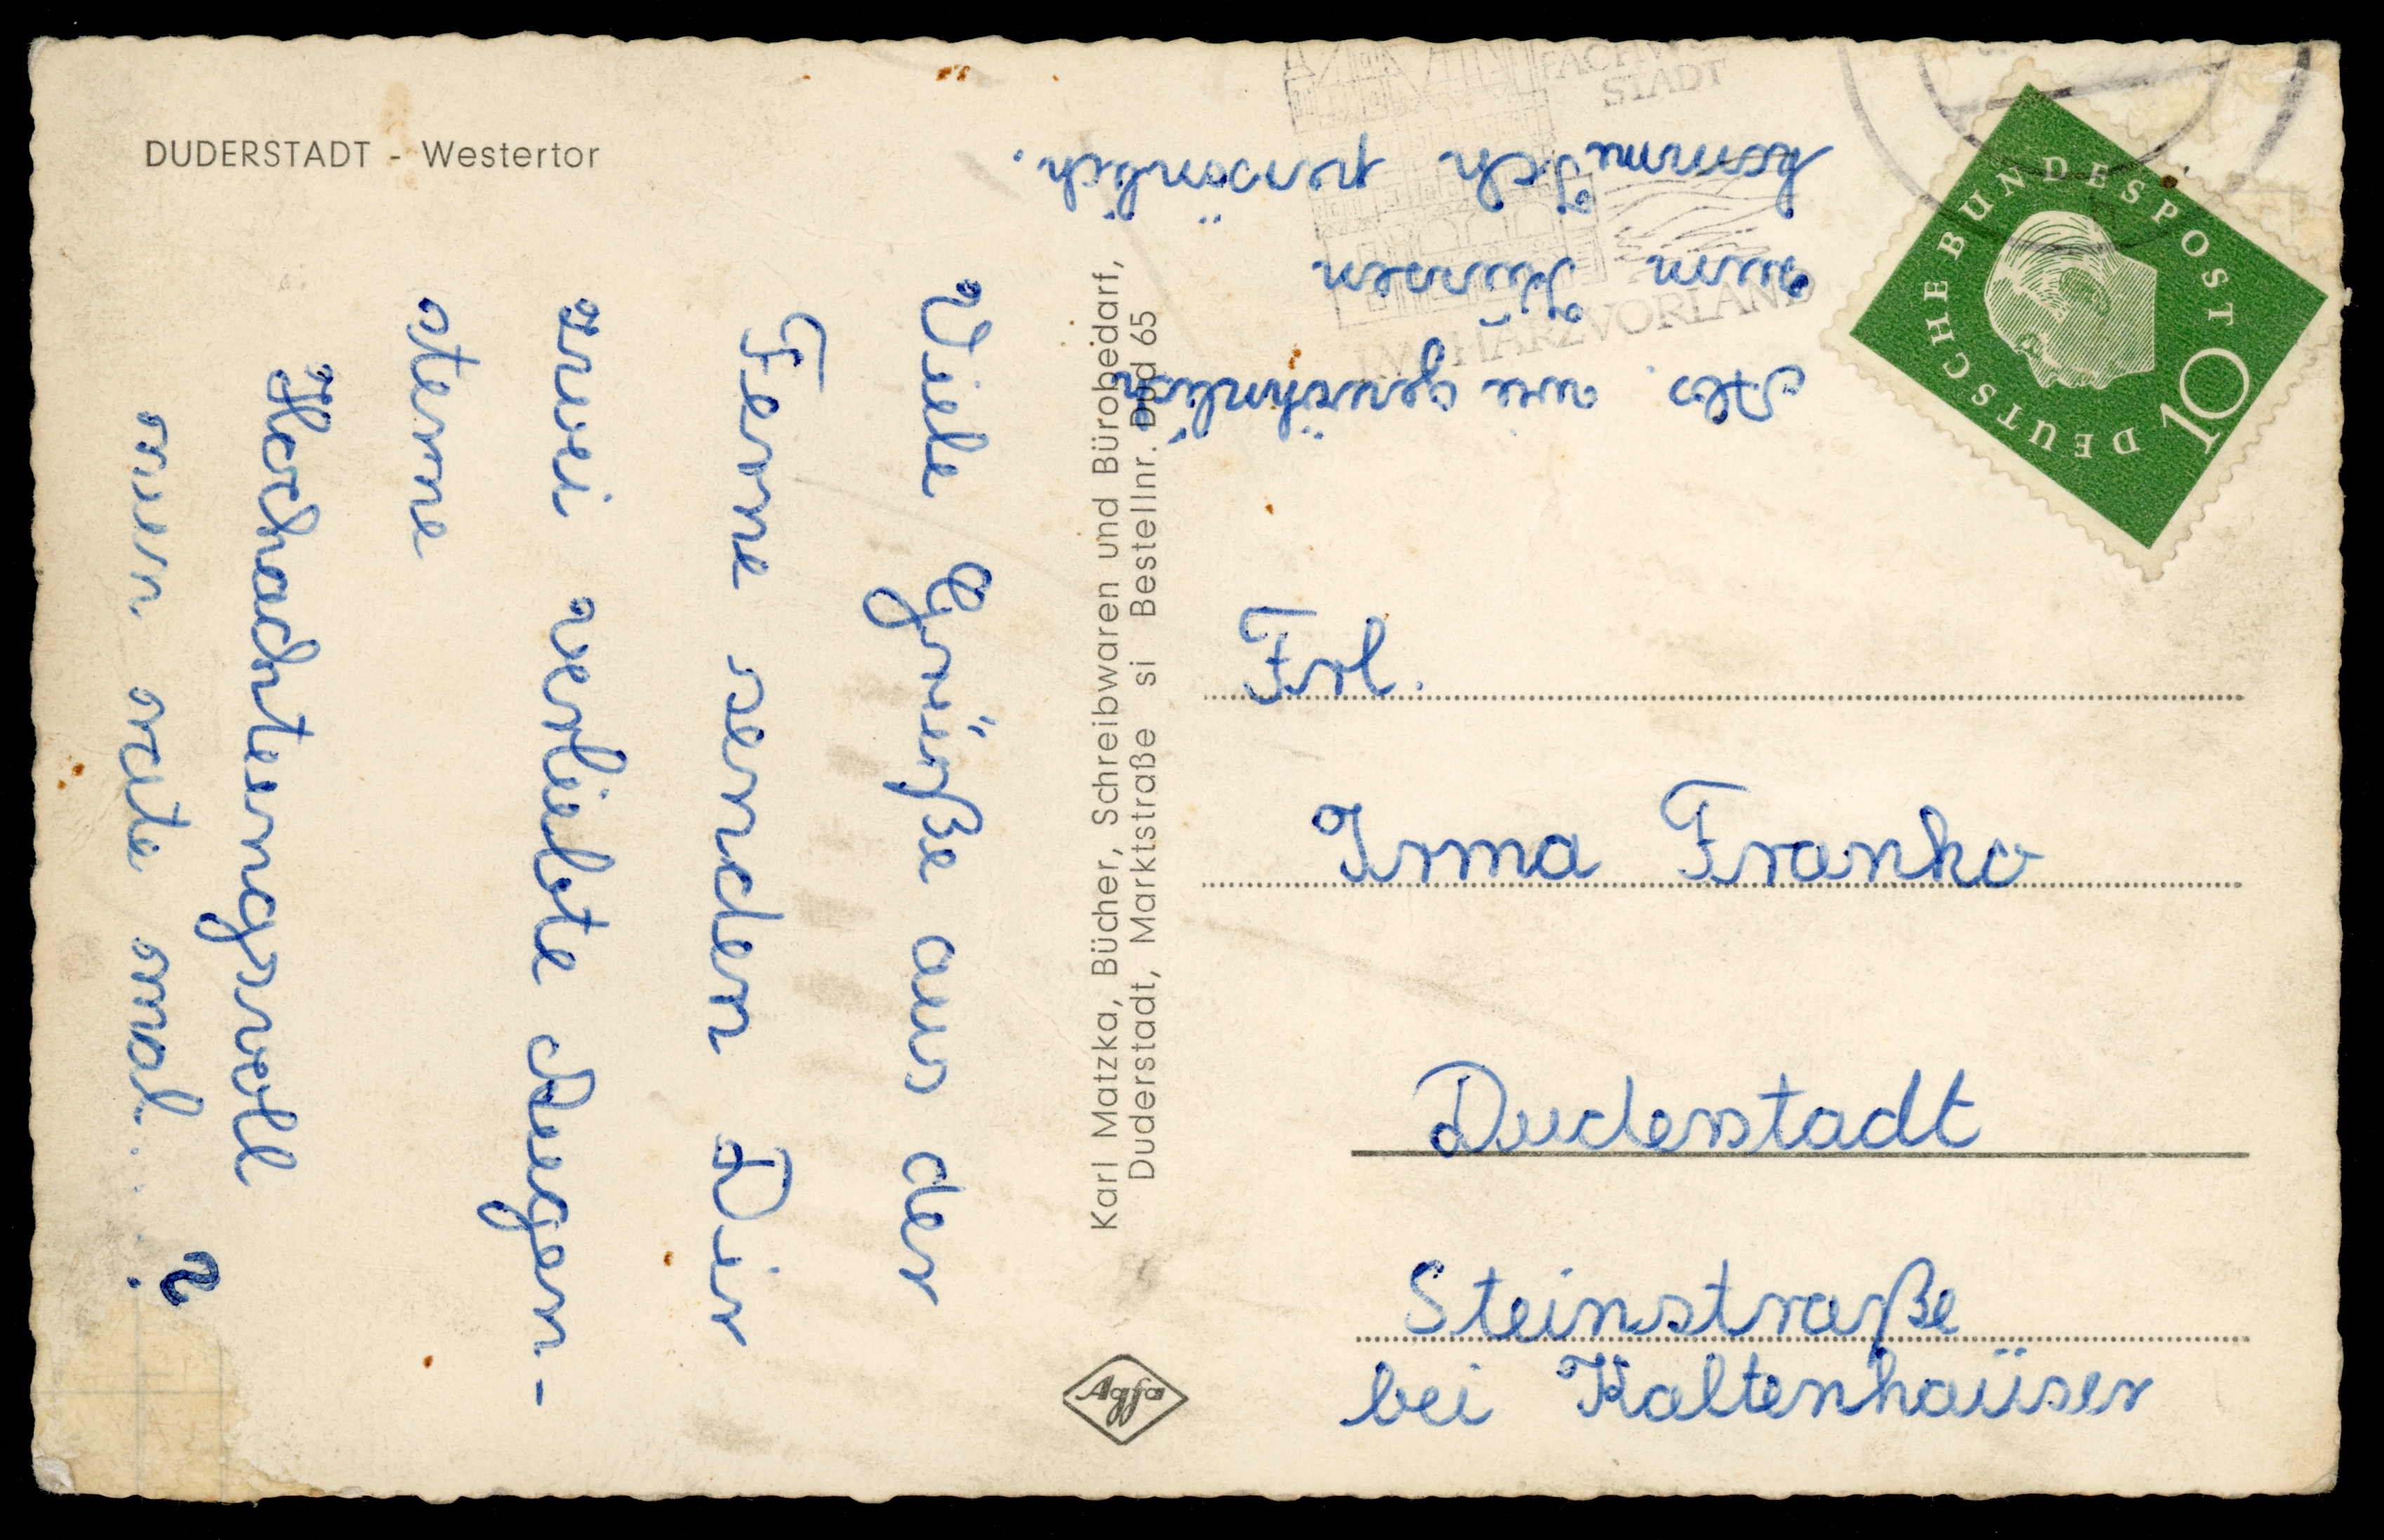 DUDERSTADT - Westertor
Viele Grüße aus der
Ferne senden Dir
zwei verliebte Augen-
sterne
Hochachtungsvoll
nun rate mal....?
Karl Matzka, Bücher, Schreibwaren und Bürobedarf,
Duderstadt, Marktstraße si Bestellnr. Dud 65
Agfa
Abs. wie gewöhnlich
zum Küssen
komme Ich persönlich.
FACHWERK
STADT
IM HARZVORLAND
DEUTSCHE BUNDESPOST
10
Frl.
Irma Franko
Duderstadt
Steinstraße
bei Kaltenhaüser